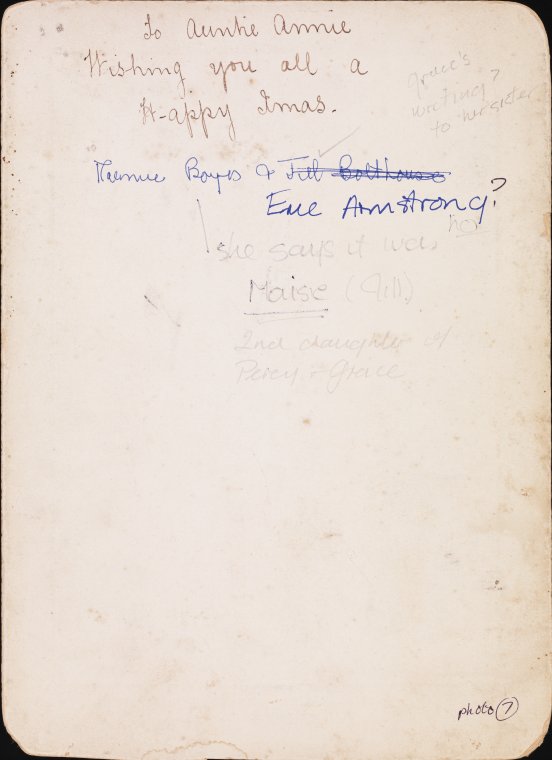 To Auntie Annie
Wishing you all a
Happy Xmas.
Grace's
writing?
to her sister
Boyes & Jill Bolthouse
Eve Armstrong?
no
she says it was
Maise (Jill)
2nd daughter of
Percy & Grace
photo 7